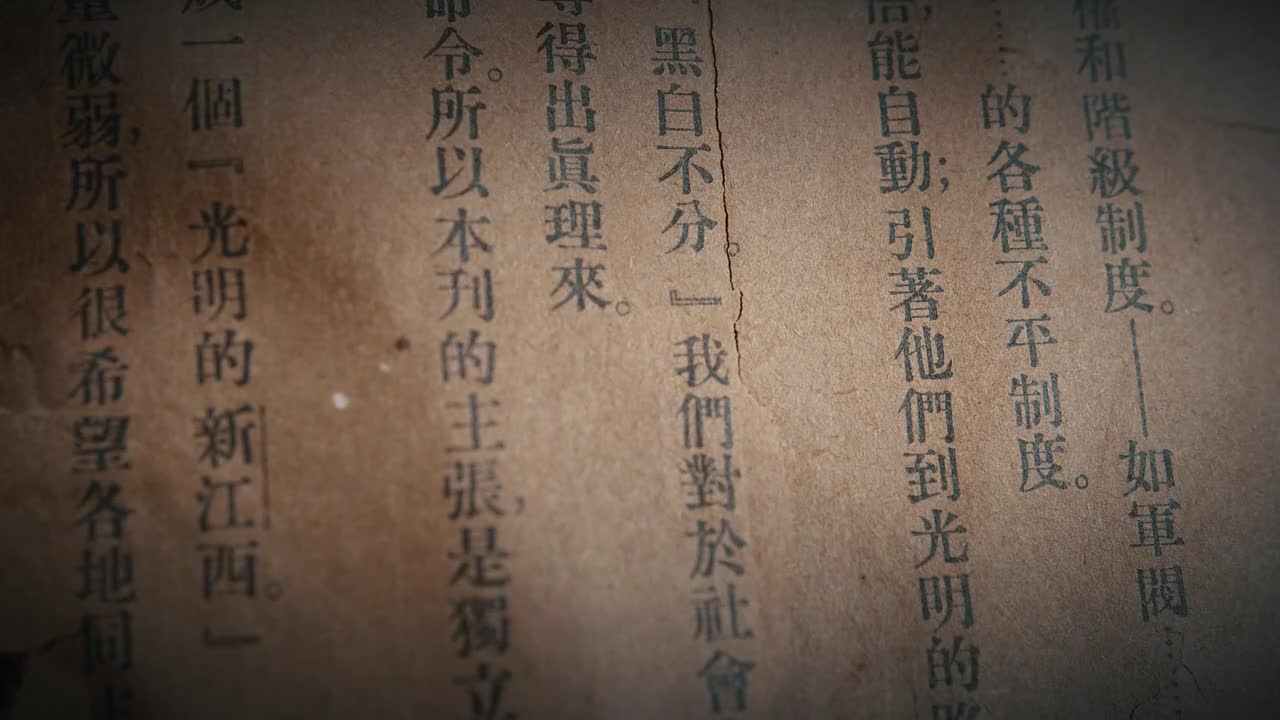 權和階級制度。——如軍閥……
……的各種不平制度。
悟,能自動;引著他們到光明的路
黑白不分。』我們對於社會
得出眞理來。
命令。所以本刊的主張,是獨立
成一個『光明的新江西。』
量微弱,所以很希望各地同